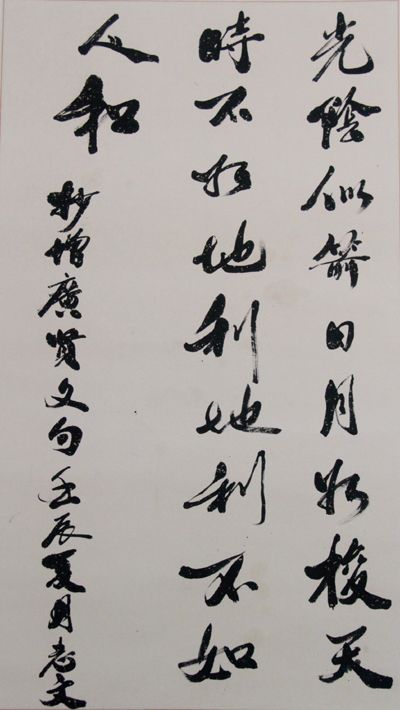 光陰似箭日月如梭天
時不如地利地利不如
人和
抄增廣賢文句壬辰夏月志文